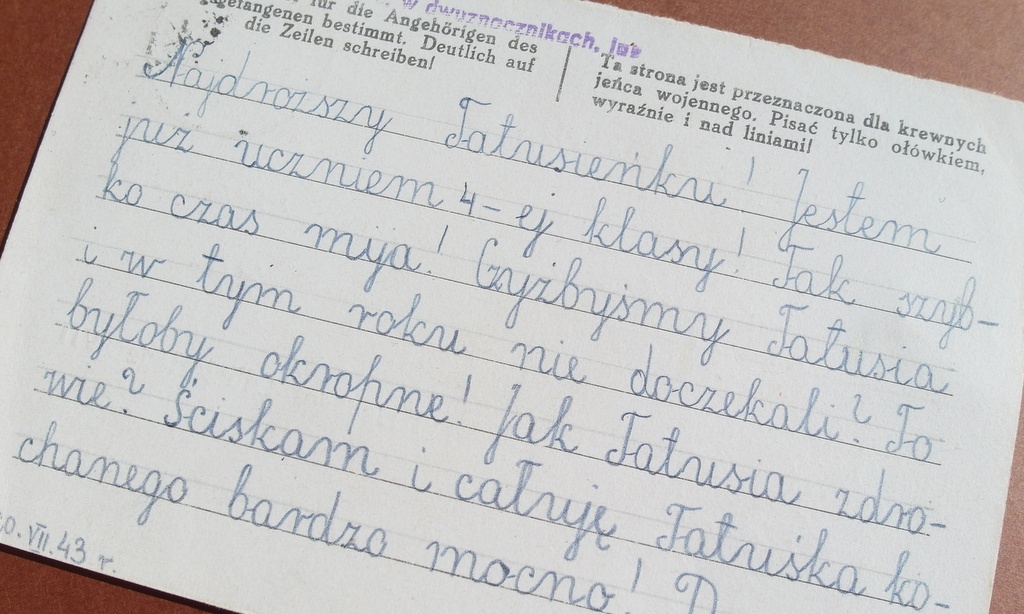 w dwuznacznikach, już
für die Angehörigen des
gefangenen bestimmt. Deutlich auf
die Zeilen schreiben!
Ta strona jest przeznaczona dla krewnych
jeńca wojennego. Pisać tylko ołówkiem,
wyraźnie i nad liniami!
Najdrozszy Tatusieńku! Jestem
już uczniem 4-ej klasy! Jak szyb-
ko czas mija! Czyżbyśmy Tatusia
i w tym roku nie doczekali? To
byłoby okropne! Jak Tatusia zdro-
wie? Ściskam i całuję Tatuśka ko-
chanego bardzo mocno!
0. VII. 43 r.